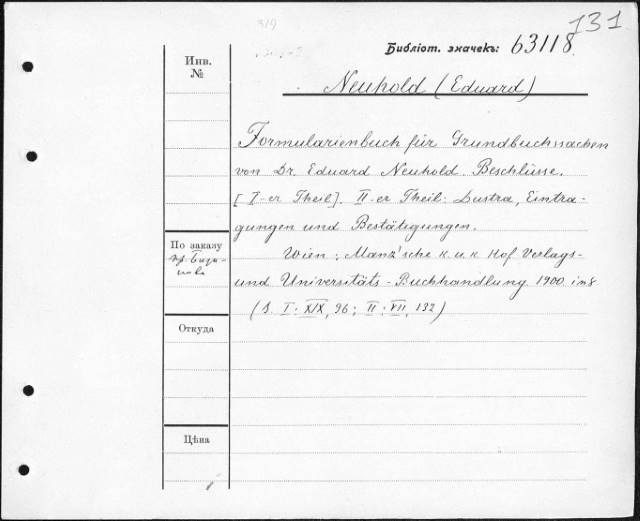 131
319
Библіот. значекъ: 63118
Инв.
№
Neuhold (Eduard)
Formularienbuch für Grundbuchssachen
von Dr. Eduard Neuhold. Beschlüsse.
[I-er Theil]. II-er Theil: Dustra, Eintra-
gungen und Bestätigungen.
Wien; Manz'sche k. u. k. Hof Verlags-
und Universitäts-Buchhandlung. 1900. in 8
(S. I: XIX, 96; II: VII, 132)
По заказу
Откуда
Цѣна